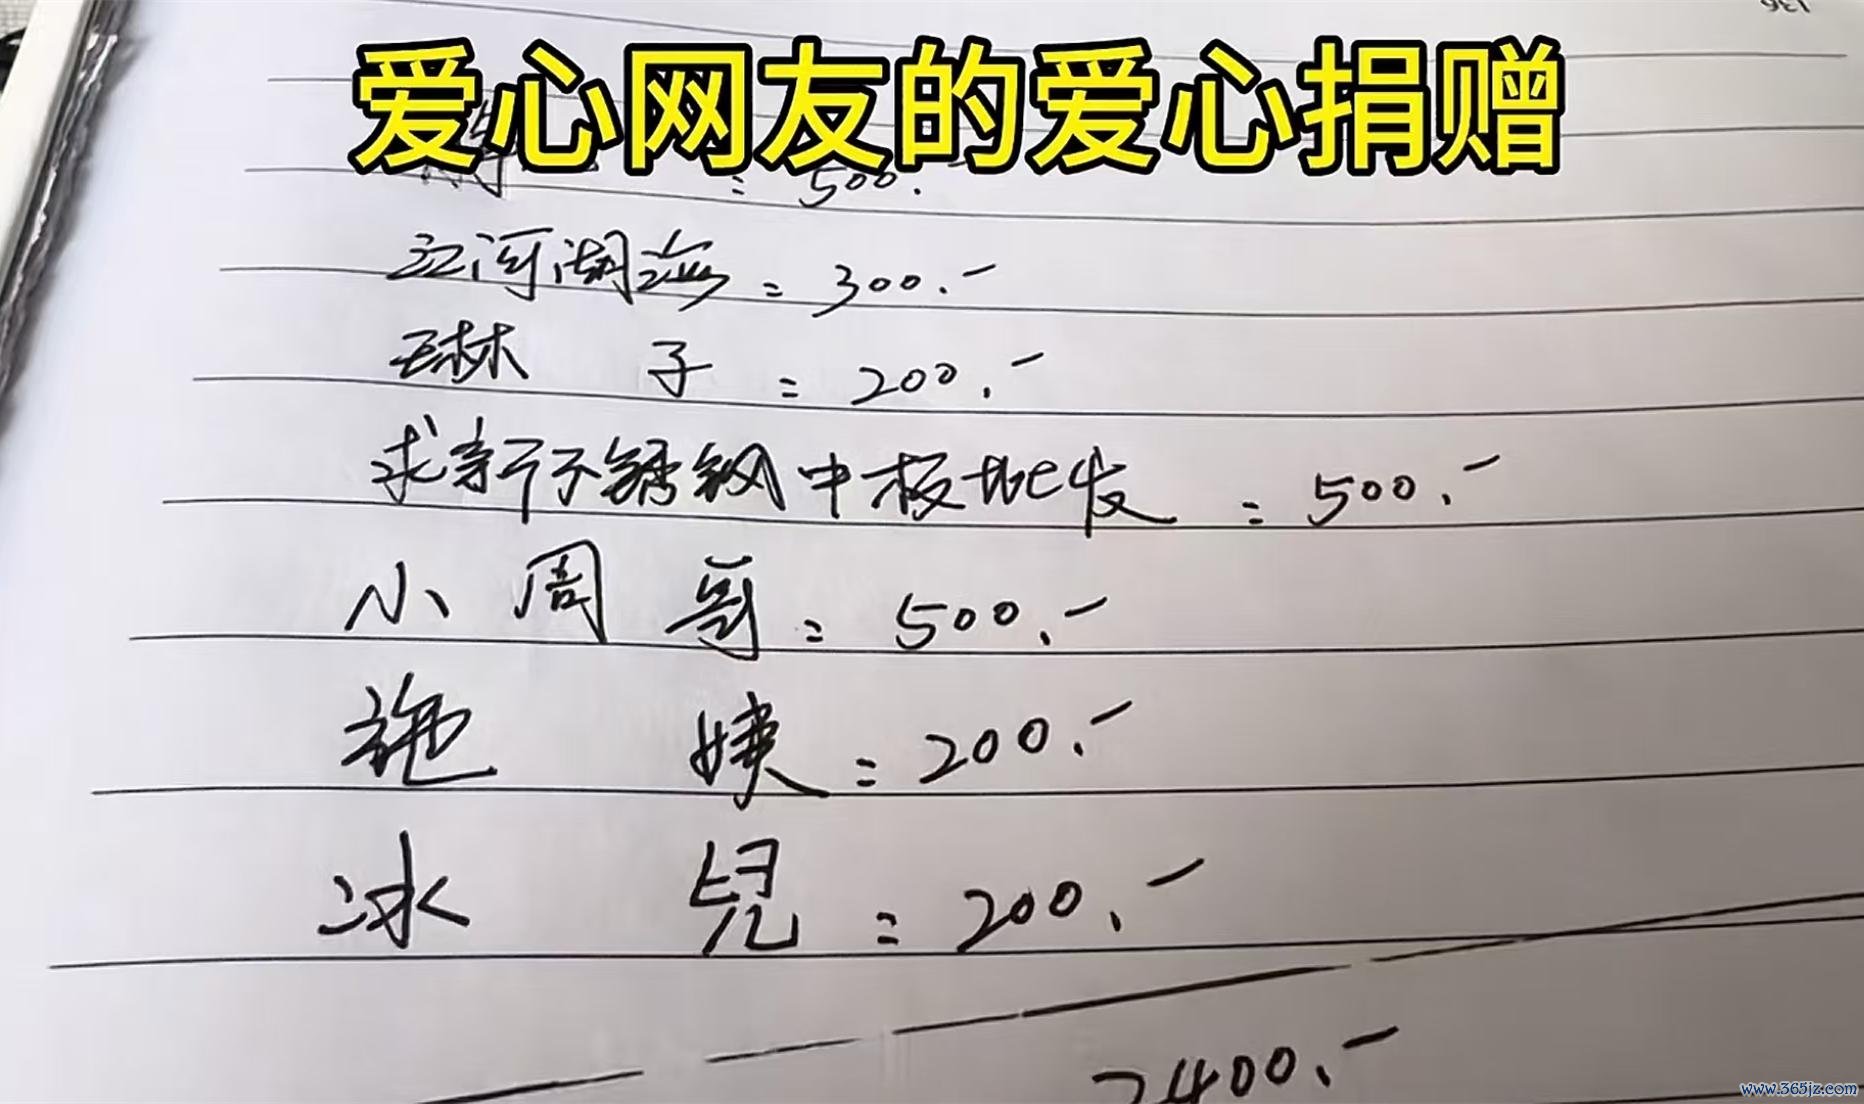 136
爱心网友的爱心捐赠
= 500.
江河湖海 = 300.-
琳 子 = 200.-
求新不锈钢中板批发 = 500.-
小 周 哥 = 500.-
施 姨 = 200.-
冰 兒 = 200.-
2400.-
www.365jz.com